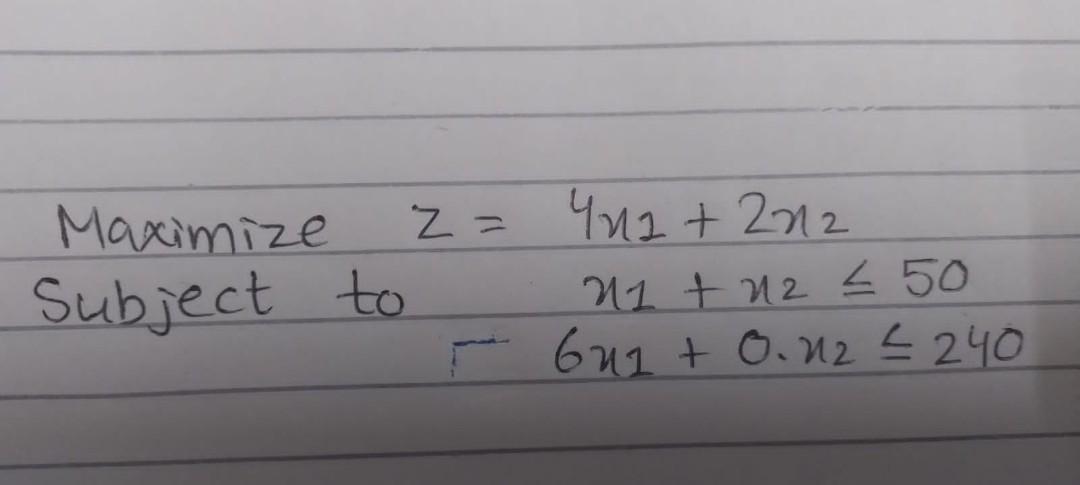 Maximize z = 4x1 + 2x2
Subject to x1 + x2 ≤ 50
6x1 + 0.x2 ≤ 240